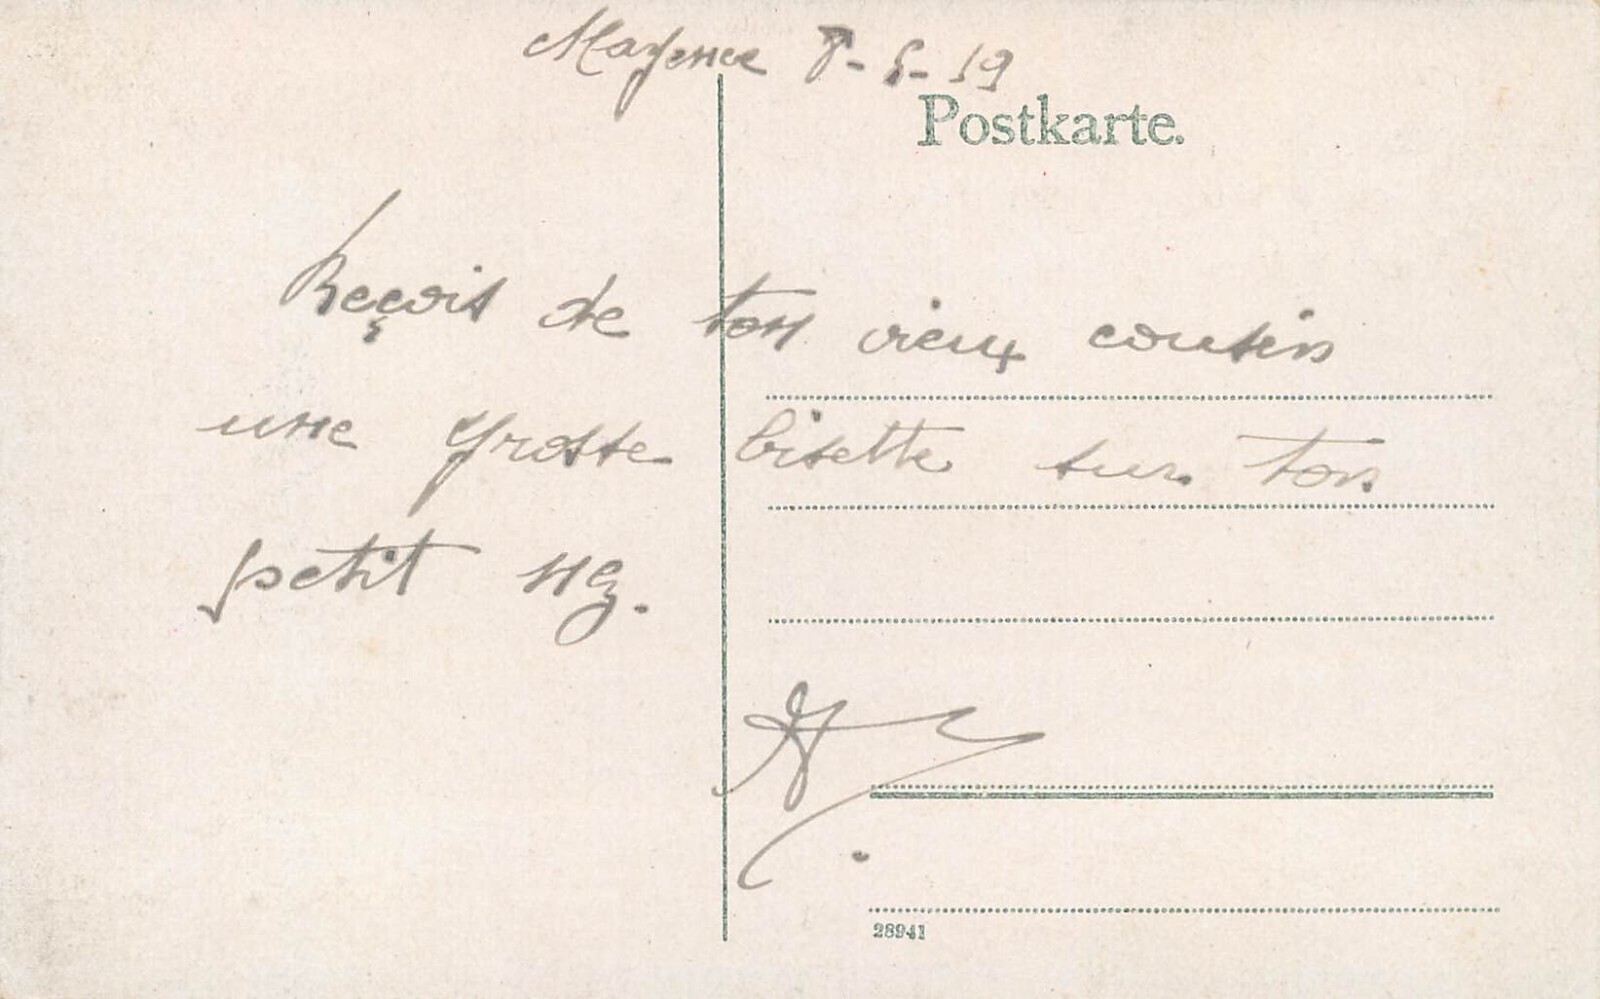 Mayence 8-5-19
Postkarte.
Reçois de ton vieux cousin
une grosse bisette sur ton
petit nez.
28941